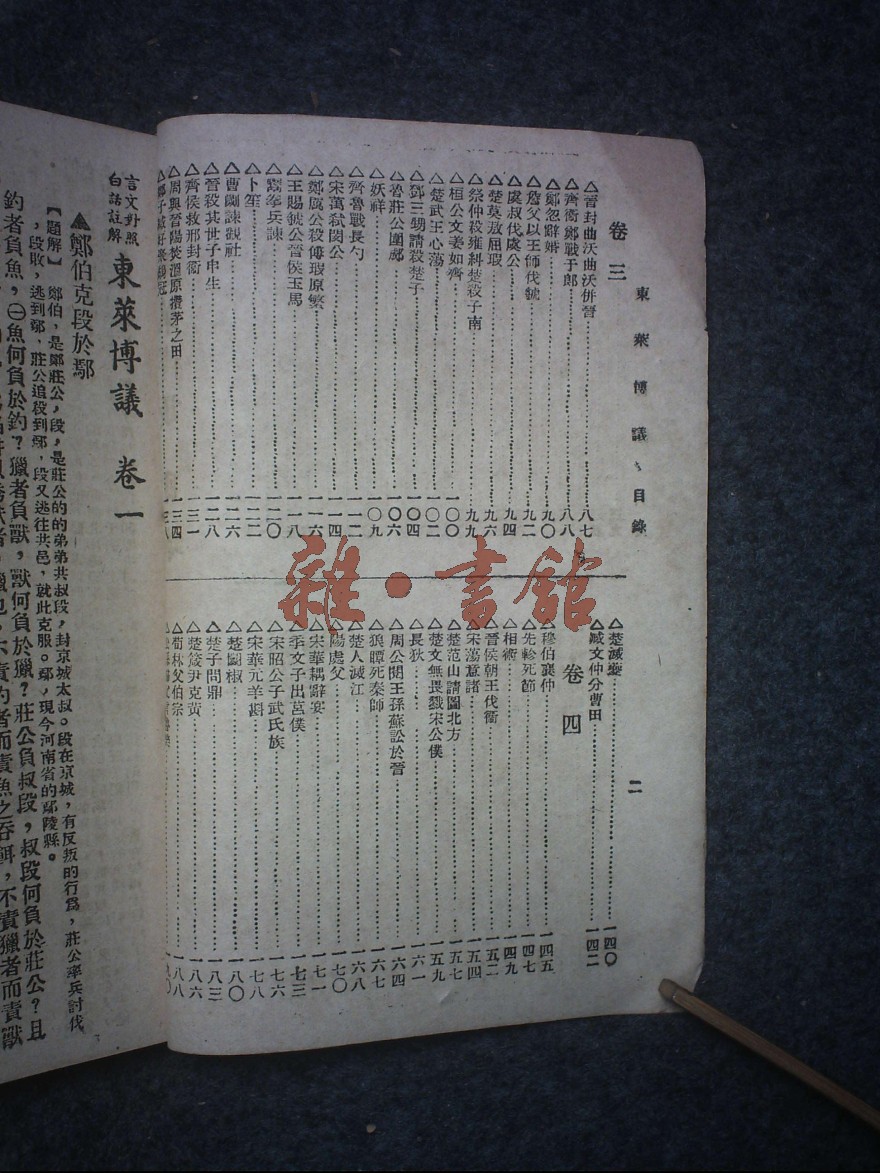 東萊博議、目錄
二
卷三
△晉封曲沃曲沃併晉⋯⋯八七
△齊衞鄭戰于郎⋯⋯八八
△鄭忽辭婚⋯⋯九〇
△詹父以王師伐虢⋯⋯九二
△虞叔伐虞公⋯⋯九四
△楚莫敖屈瑕⋯⋯九六
△祭仲殺雍糾楚殺子南⋯⋯九九
△桓公文姜如齊⋯⋯一〇〇
△楚武王心蕩⋯⋯一〇二
△鄧三甥請殺楚子⋯⋯一〇四
△魯莊公圍郕⋯⋯一〇六
△妖祥⋯⋯一〇九
△齊魯戰長勺⋯⋯一一二
△宋萬弒閔公⋯⋯一一四
△鄭厲公殺傅瑕原繁⋯⋯一一六
△王賜虢公晉侯玉馬⋯⋯一一八
△鬻拳兵諫⋯⋯一二〇
△卜筮⋯⋯一二二
△曹劌諫觀社⋯⋯一二六
△晉殺其世子申生⋯⋯一二八
△齊侯救邢封衞⋯⋯一三一
△周與晉陽樊溫原攢茅之田⋯⋯一三四
△楚滅夔⋯⋯一四〇
△臧文仲分曹田⋯⋯一四二
卷四
△穆伯襄仲⋯⋯一四五
△先軫死節⋯⋯一四七
△相術⋯⋯一四九
△晉侯朝王伐衞⋯⋯一五二
△宋蕩意諸⋯⋯一五四
△楚范山請圖北方⋯⋯一五七
△楚文無畏戮宋公僕⋯⋯一五九
△長狄⋯⋯一六一
△周公閱王孫蘇訟於晉⋯⋯一六四
△狼瞫死秦師⋯⋯一六七
△楚人滅江⋯⋯一六八
△陽處父⋯⋯一七〇
△宋華耦辭宴⋯⋯一七一
△季文子出莒僕⋯⋯一七三
△宋昭公子武氏族⋯⋯一七六
△宋華元羊斟⋯⋯一七八
△楚鬬椒⋯⋯一八〇
△楚子問鼎⋯⋯一八三
△楚箴尹克黃⋯⋯一八六
△荀林父伯宗⋯⋯一八八
雜·書館
言文對照
白話註解
東萊博議 卷一
▲鄭伯克段於鄢
【題解】 鄭伯，是鄭莊公，段，是莊公的的弟弟共叔段，封京城太叔。段在京城，有反叛的行爲，莊公率兵討伐
，段敗，逃到鄢，莊公追段到鄢，段又逃往共邑，就此克服。鄢，現今河南省的鄢陵縣。
釣者負魚，㊀魚何負於釣？獵者負獸，獸何負於獵？莊公負叔段，叔段何負於莊公？且